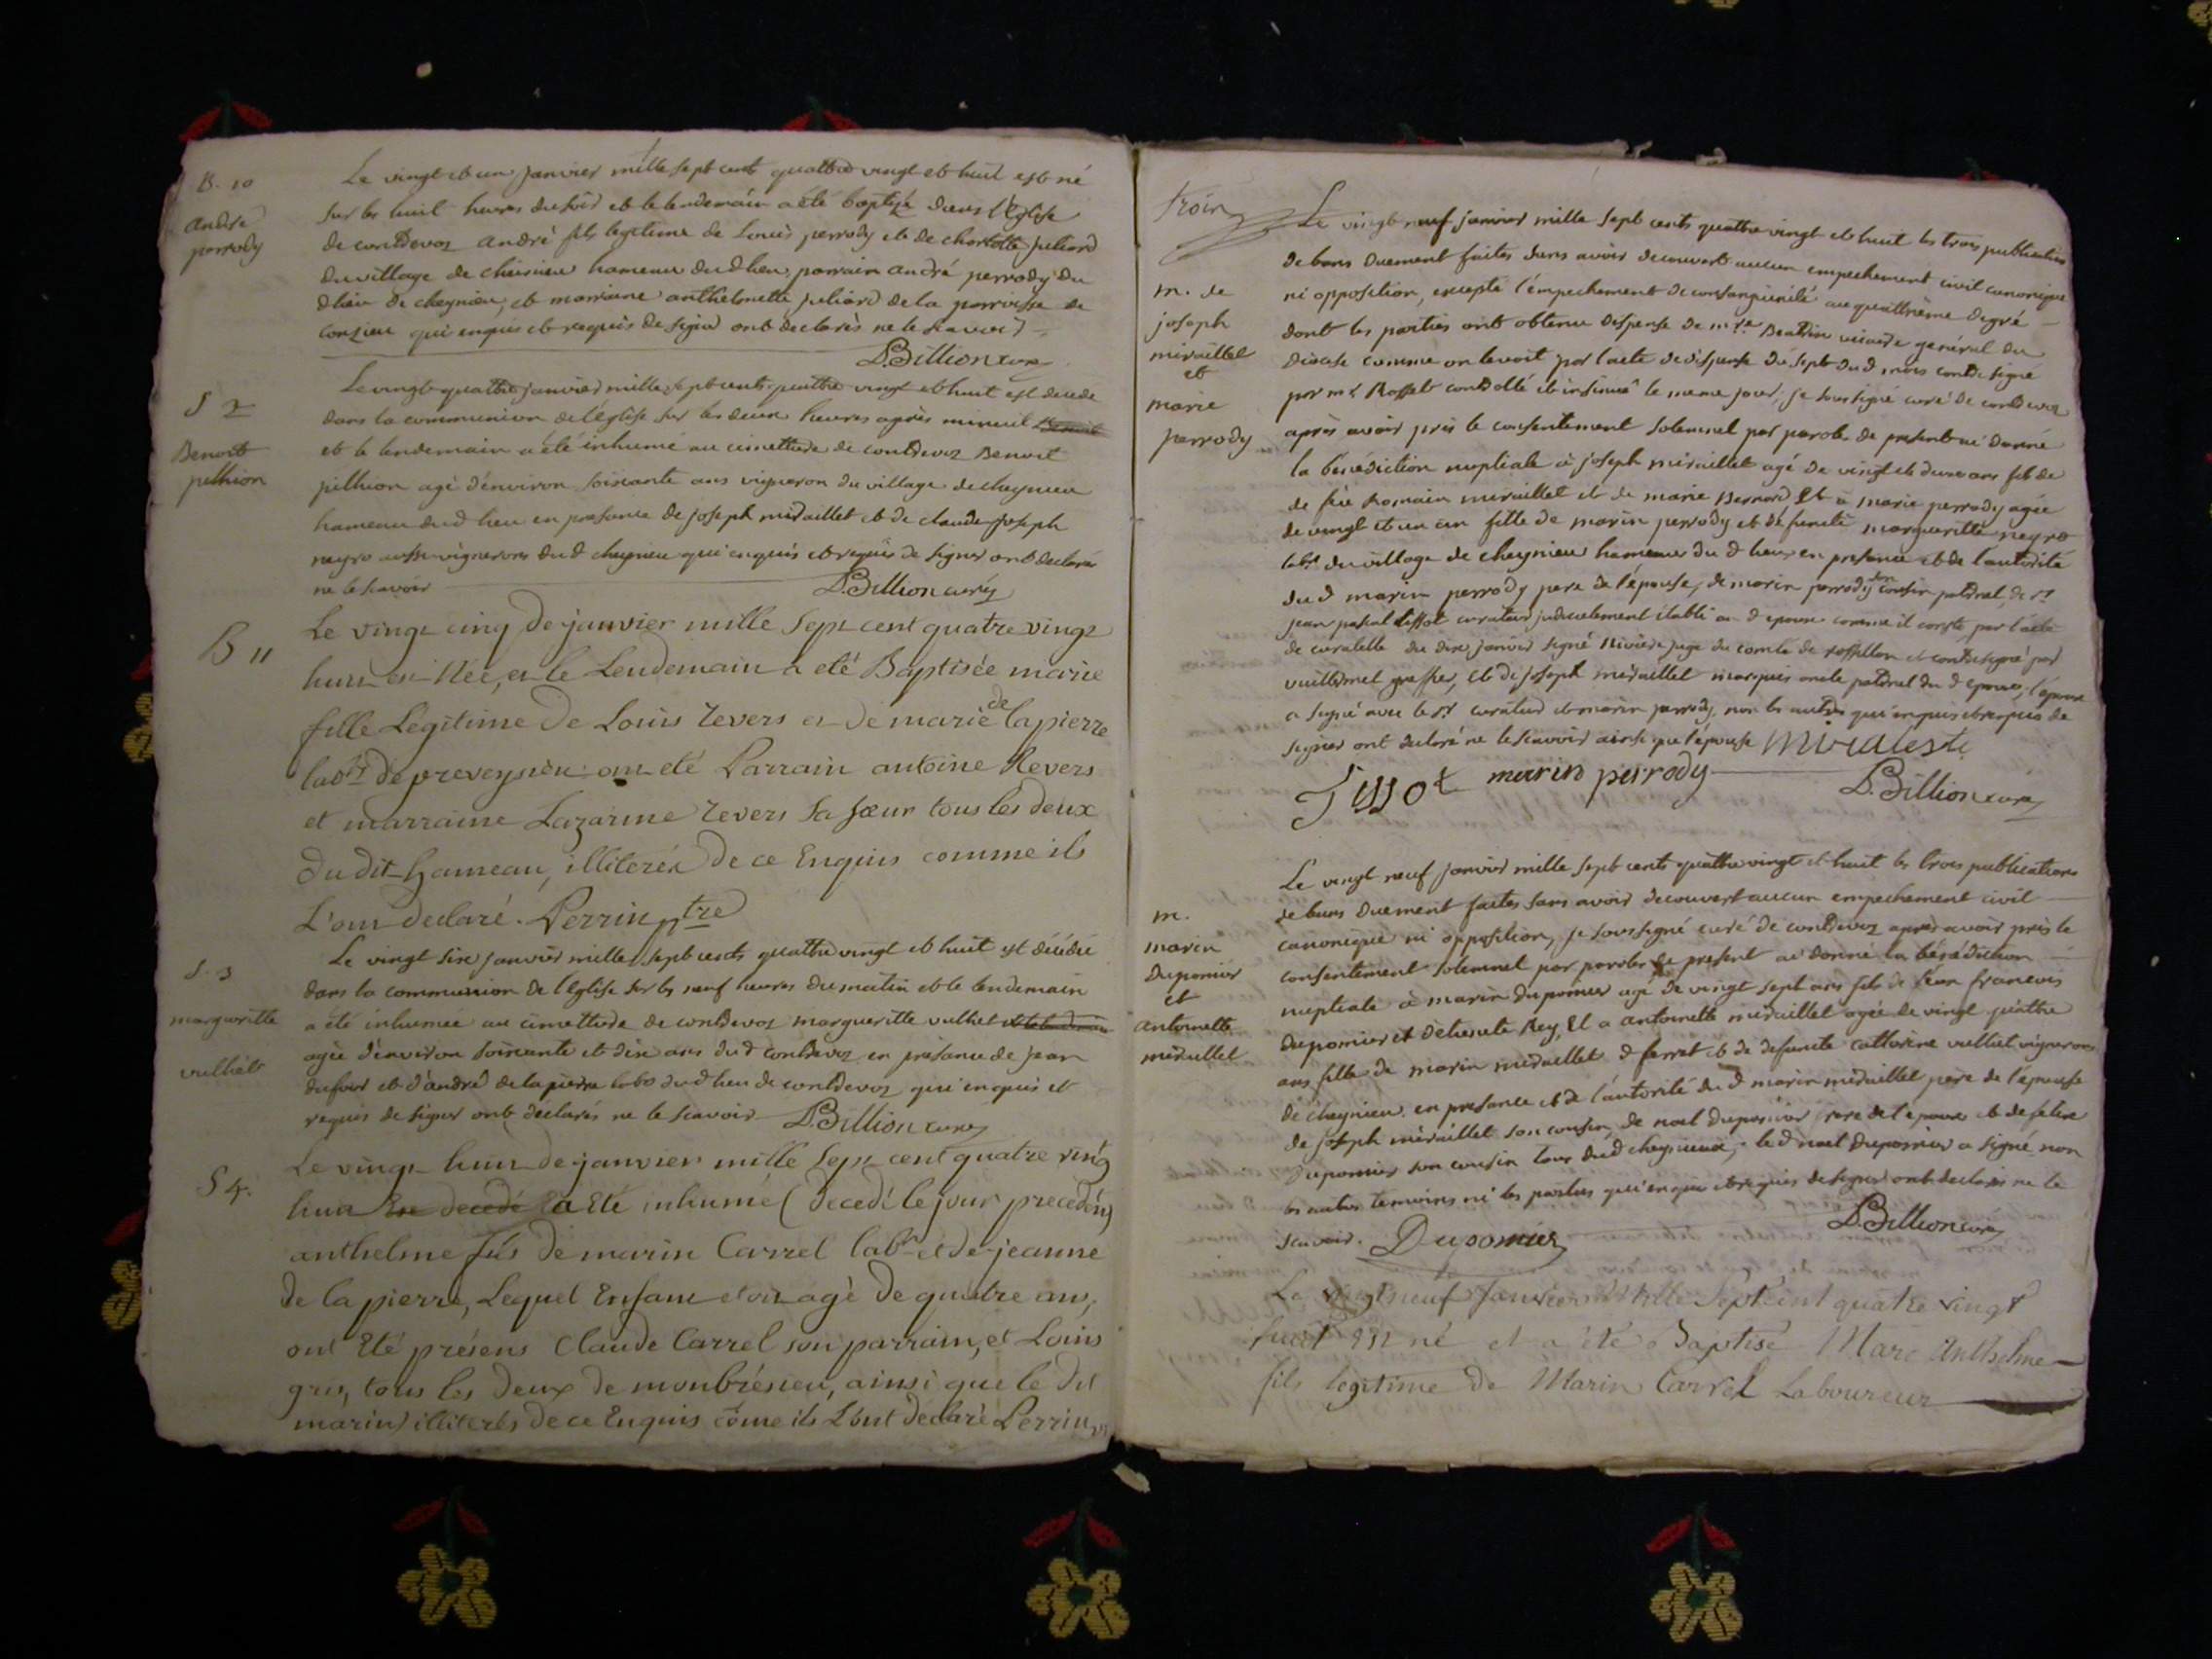 B. 10
andré
perrody
Le vingt et un janvier mille sept cent quattre vingt et huit est né
sur les huit heures du soir et le lendemain a été baptisé dans l'église
de contrevoz andré fils legitime de Louis perrody et de charlotte juliard
du village de cheinieu hameau dud lieu, parrain andré perrody du
d lieu de cheynieu, et marraine anthelmette juliard de la parroisse de
conzieu qui enquis et requis de signer ont declarés ne le scavoir
D. Billion curé
S 2
Benoit
pilhion
Le vingt quattre janvier mille sept cents quattre vingt et huit est decedé
dans la communion de l'église sur les deux heures après minuit
et le lendemain a été inhumé au cimettiere de contrevoz Benoit
pilhion agé d'environ soixante ans vigneron du village de cheynieu
hameau dud lieu en presance de joseph miraillet et de claude joseph
neyro aussi vignerons dud cheynieu qui enquis et requis de signer ont declarés
ne le scavoir D. Billion curé
B 11
Le vingt cinq de janvier mille sept cent quatre vingt
huit est Née, et le Lendemain a eté Baptisée marie
fille Légitime de Louis Revers et de marie de lapierre
labrs de preveysieu ont eté Parrain antoine Revers
et marraine Lazarine Revers sa sœur tous les deux
du dit hameau, illiterés de ce Enquis comme ils
L'ont declaré. Perrin ptre
S. 3
margueritte
vulliet
Le vingt six janvier mille sept cents quattre vingt et huit est décédée
dans la communion de l'église sur les neuf heures du matin et le lendemain
a été inhumée au cimettiere de contrevoz margueritte vulliet et le lendemain
agée d'environ soixante et dix ans dud contrevoz en présance de jean
dufour et d'andré delapierre labrs dud lieu de contrevoz qui enquis et
requis de signer ont déclarés ne le scavoir D. Billion curé
S 4.
Le vingt huit de janvier mille sept cent quatre vingt
huit Est decedé Ea Eté inhumé (decedé le jour precedent)
anthelme fils de marin Carrel labr et de jeanne
de la pierre, Lequel Enfant etoit agé de quatre ans,
ont Eté présens Claude Carrel son parrain, et Louis
gris, tous les deux de monbrésieu, ainsi que le dit
marin illiterés de ce Enquis côme ils L'ont declaré Perrin
trois
m. de
joseph
miraillet
et
marie
perrody
Le vingt neuf janvier mille sept cents quattre vingt et huit les trois publications
de bans duement faites sans avoir decouvert aucun empechement civil canonique
ni opposition, excepté l'empechement de consanguinité au quattrieme degré
dont les parties ont obtenu dispense de mre vicaire general du
diocese comme on le voit par l'acte de dispense du sept dud mois contresigné
par mr Rosset controllé et insinué le meme jour, je soussigné curé de contrevoz
après avoir pris le consentement solemnel par parole de present ai donné
la bénédiction nuptiale à joseph miraillet agé de vingt et deux ans fils de
de feu Romain miraillet et de marie Bernard Et à marie perrody agée
de vingt et un an fille de marin perrody et défuncte margueritte neyro
labrs du village de cheynieu hameau du d lieu en presance et de l'autorité
dud marin perrody pere de l'épouse, de marin perrody son cousin paternel, de sr
jean pascal tissot curateur judiciellement établi au d epoux comme il conste par l'acte
de curatelle du dix janvier signé Riviere juge du comté de rossillon et contresigné par
vuillermet greffier, et de joseph miraillet marquis oncle paternel du d epoux, l'epoux
a signé avec le sr curateur et marin perrody, non les autres qui enquis et requis de
signer ont declaré ne le scavoir ainsi que l'épouse
Tissot marin perrody D. Billion curé
m.
marin
duponier
et
antoinette
miraillet
Le vingt neuf janvier mille sept cents quattre vingt et huit les trois publications
de bans duement faites sans avoir decouvert aucun empechement civil
canonique ni opposition, je soussigné curé de contrevoz après avoir pris le
consentement solemnel par paroles de present ai donné la bénédiction
nuptiale à marin duponier agé de vingt sept ans fils de feu francois
duponier et Rey, Et a antoinette miraillet agée de vingt quattre
ans fille de marin miraillet d ferret et de defuncte catherine vulliet vignerons
de cheynieu en presance et de l'autorité dud marin miraillet père de l'epouse
de joseph miraillet son cousin, de noel duponier frere de l'epoux et de
Duponier son cousin tous dud cheynieux, le d noel duponier a signé non
les autres temoins ni les parties qui enquis et requis de signer ont declarés ne le
scavoir. Duponier D. Billion curé
Le vingt neuf Janvier Mille Sept cent quatre vingt
huit est né et a été Baptisé Marc Anthelme
fils legitime de Marin Carrel Laboureur